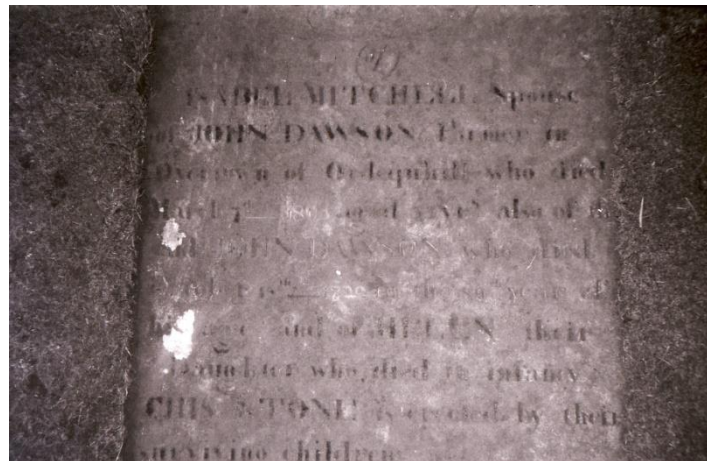 ISABEL MITCHELL Spouse
of JOHN DAWSON Farmer in
Overtown of Ordequhill who died
March 7th aged years also of the
said JOHN DAWSON who died
15th in the year of
his age and of HELEN their
Daughter who died in infancy
THIS STONE is erected by their
surviving children